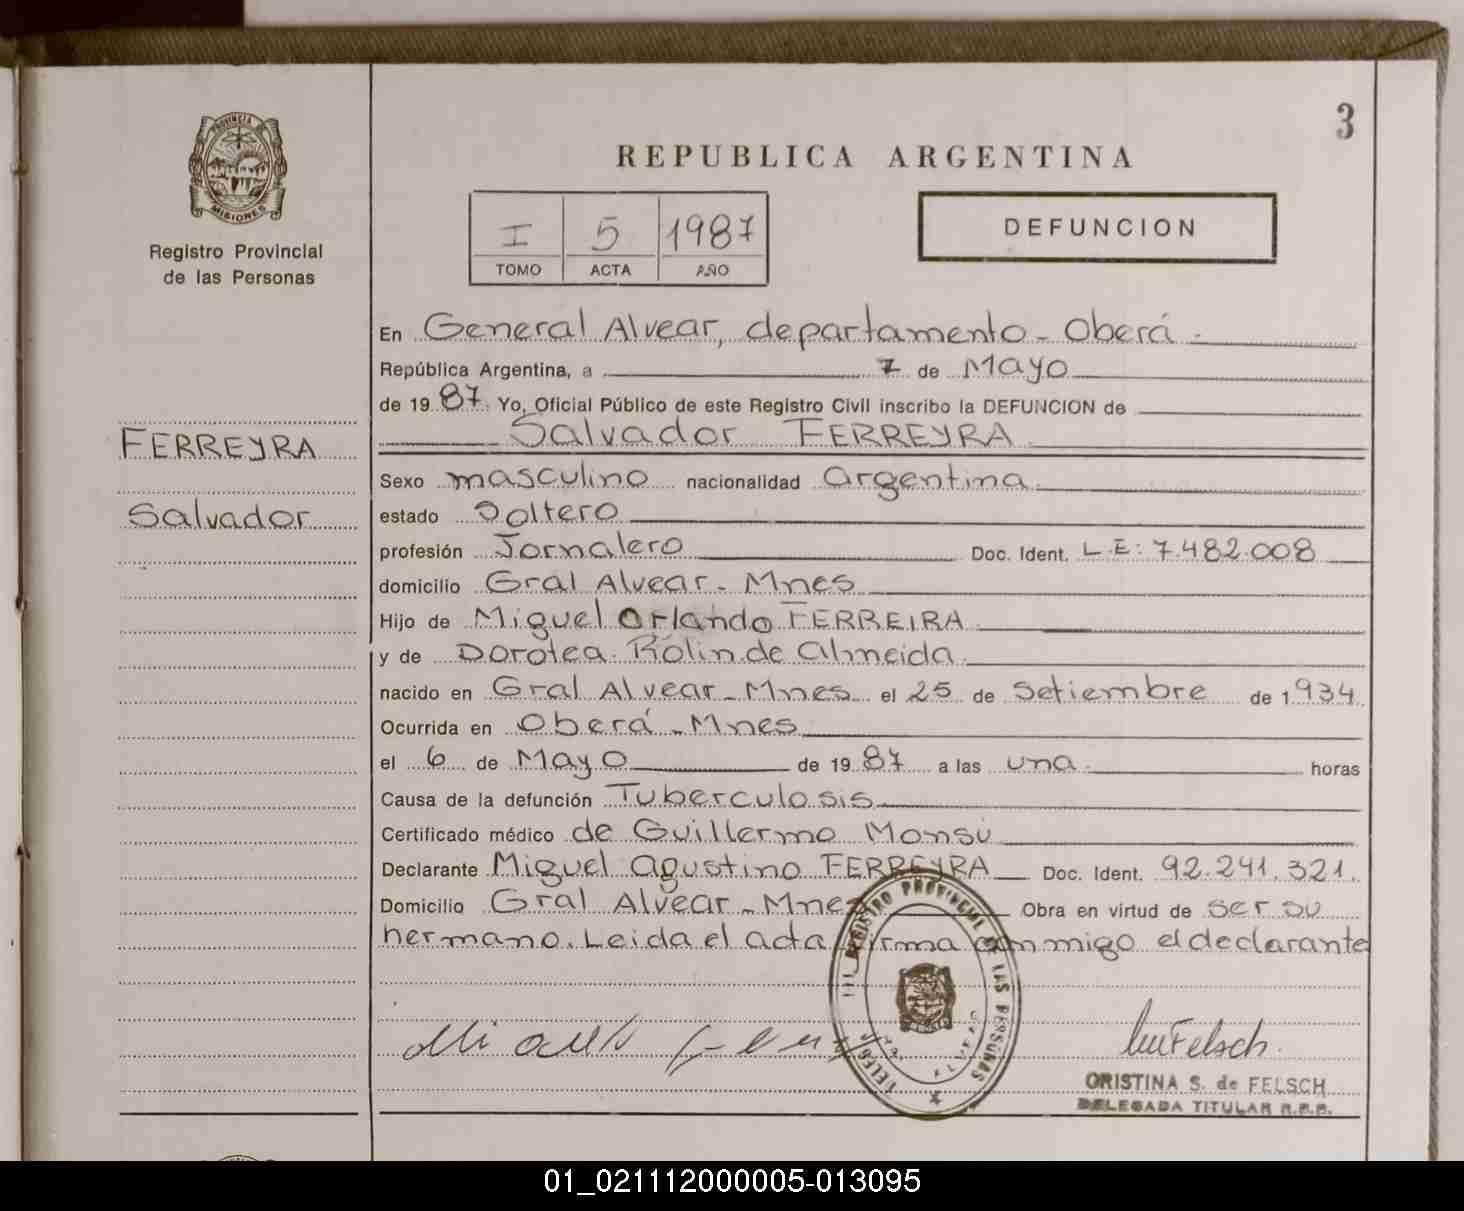 3
PROVINCIA DE
MISIONES
Registro Provincial
de las Personas
REPUBLICA ARGENTINA
I 5 1987
TOMO ACTA AÑO
DEFUNCION
FERREYRA
Salvador
En General Alvear, departamento - Oberá -
República Argentina, a 7 de Mayo
de 1987. Yo, Oficial Público de este Registro Civil inscribo la DEFUNCION de
Salvador FERREYRA
Sexo masculino nacionalidad argentina
estado Soltero
profesión Jornalero Doc. Ident. L.E: 7.482.008
domicilio Gral Alvear - Mnes
Hijo de Miguel Orlando FERREIRA
y de Dorotea Rolin de almeida
nacido en Gral Alvear - Mnes el 25 de Setiembre de 1934
Ocurrida en Oberá - Mnes
el 6 de Mayo de 1987 a las una horas
Causa de la defunción Tuberculosis
Certificado médico de Guillermo Monsú
Declarante Miguel agustino FERREYRA Doc. Ident. 92.241.321.
Domicilio Gral Alvear - Mnes Obra en virtud de ser su
hermano. Leida el acta firma conmigo el declarante
REGISTRO PROVINCIAL DE LAS PERSONAS
CRISTINA S. de FELSCH
DELEGADA TITULAR R.P.P.
01_021112000005-013095